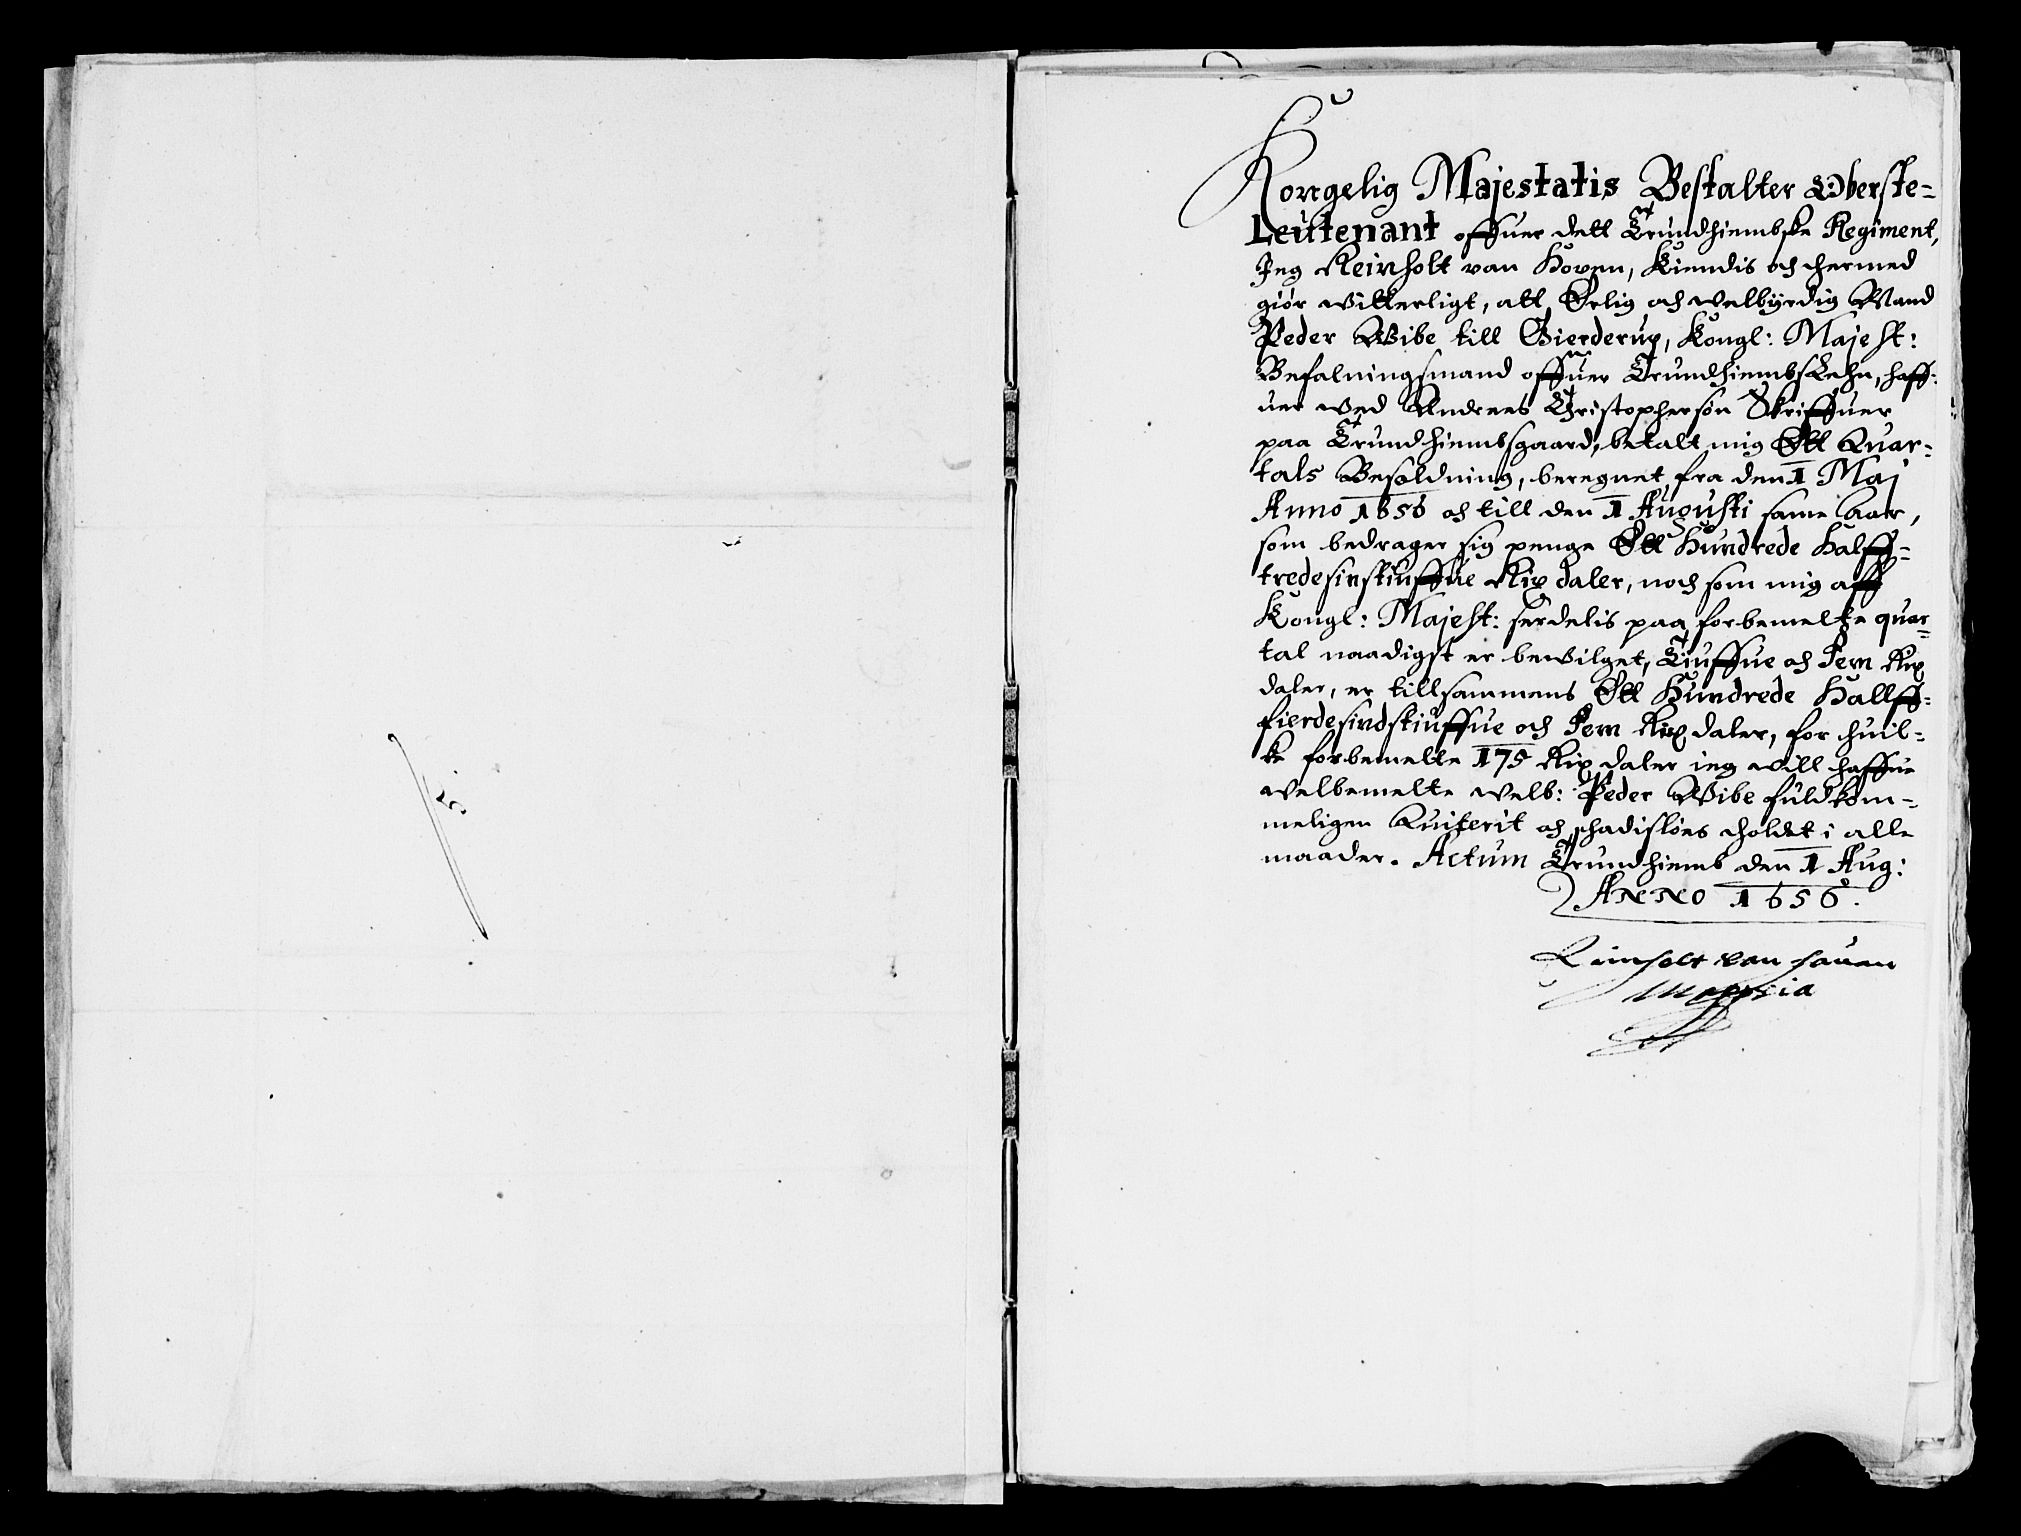 5.
Kongelig Majestatis Bestalter Oberste-
Leutenant offuer dett Trundhiembske Regiment,
Jeg Reinholt van Hoven, Kiendis och hermed
giör witterligt, att Erlig och welbÿrdig Mand
Peder Wibe till Gierderup, Kongl: Majest:
Befalningsmand offuer Trundhiembs Lehn, haff-
uer wed Andrees Christophersøn Skriffuer
paa Trundhiembsgaard, betalt mig Ett Quar-
tals Besoldning, beregnet fra den 1 Maj
Anno 1656 och till den 1 Augusti same Aar,
som bedrager sig penge Ett Hundrede Halff-
tredesinstiuffue Rix daler, noch som mig aff
Kongl: Majest: serdelis paa forbemelte quar-
tal naadigst er bewilget, Tiuffue och Fem Rix
daler, er tillsammens Ett Hundrede Hallff-
fierdesindstiuffue och Fem Rix daler, for huil-
ke forbemelte 175 Rix daler ieg will haffue
welbemelte welb: Peder Wibe fuldkom-
meligen Quiterit och schadisløes holdet i alle
maader. Actum Trundhiemb den 1 Aug:
ANNO 1656.
Reinholt van Houen